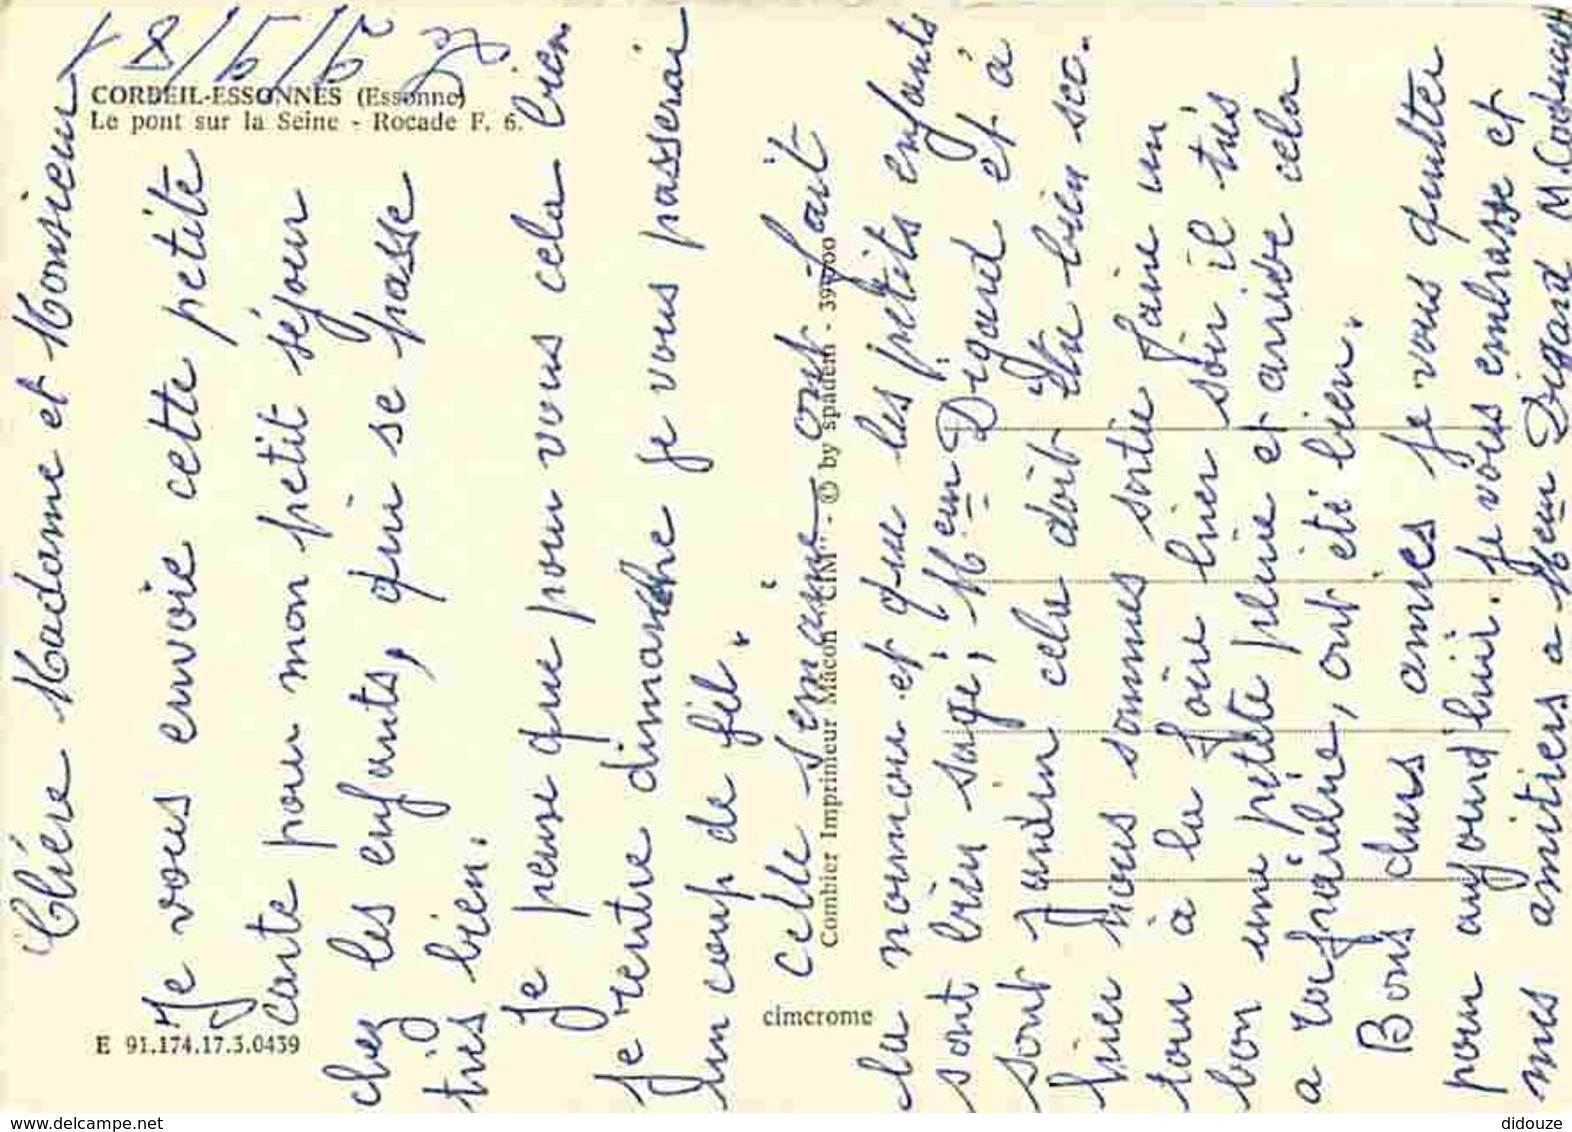 CORBEIL-ESSONNES (Essonne)
Le pont sur la Seine - Rocade F. 6.
Chére Madame et Monsieur
Je vous envoie cette petite
carte pour mon petit séjour
chez les enfants, qui se passe
très bien.
Je pense que pour vous cela bien
Je rentre dimanche je vous passerai
un coup de fil.
cette semaine ont fait
la et que les petits enfants
sont bien sage, Digard et à
sont cela doit être bien sec.
hier nous sommes sortie faire un
tour à la foire hier soir il très
bon une petite pluie et arrivée cela
a rafraichie, ont été bien.
Bons chers amies je vous quitter
pour aujourd'hui. je vous embrasse et
mes amitiers a Digard M.
Combier Imprimeur Mâcon "CIM" - © by spadem -
cimcrome
E 91.174.17.3.0439
didouze